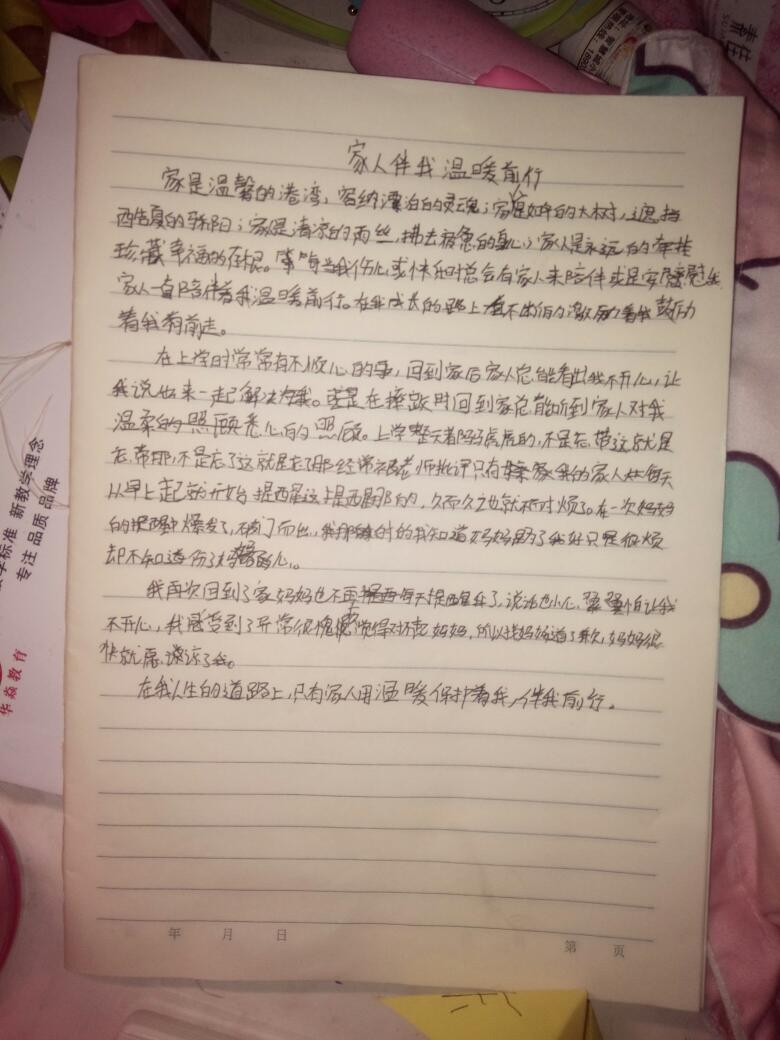 家人伴我温暖前行
家是温馨的港湾，容纳漂泊的灵魂；家是如伞的大树，遮挡
酷夏的骄阳；家是清凉的雨丝，拂去疲惫的身心；家人是永远的牵挂
珍藏幸福的在根。每当我伤心或快乐时总会有家人来陪伴或是安慰
家人一直陪伴着我温暖前行。在我成长的路上有不出们的激励着我鼓励
着我前走。
在上学时常常有不顺心的事，回到家后家人总能看出我不开心，让
我说出来一起解决为我。或是在摔跤时回到家总能听到家人对我
温柔的照顾悉心的照顾。上学整天都马马虎虎的，不是忘带这就是
忘带那，不是忘了这就是忘了那经常被老师批评只有我的家人每天
从早上起就开始提醒这提醒那的，久而久之也就相对烦了。在一次妈妈
的提醒中爆发了，破门而出，我那时的我知道妈妈为了我好只是很烦
却不知道伤了妈妈的心。
我再次回到了家妈妈也不再每天提醒我了，说话也小心翼翼怕让我
不开心，我感受到了异常很愧疚觉得对不起妈妈，所以找妈妈道了歉，妈妈很
快就原谅了我。
在我人生的道路上，只有家人用温暖保护着我，伴我前行。
年 月 日
第 页
学标准 新教学理念
专注 品质 品牌
华焱教育